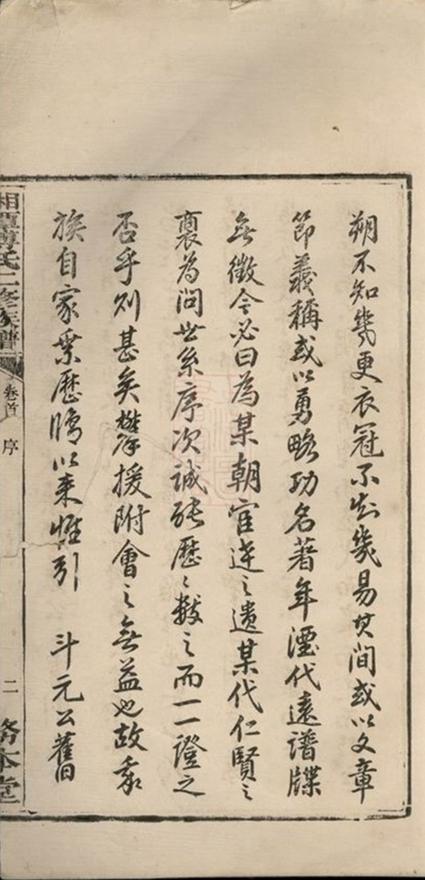 朔不知幾更衣冠不知幾易其間或以文章
節義稱或以勇略功名著年湮代遠譜牒
無徵今必曰為某朝宦迹之遺某代仁賢之
裔為問世系序次誠能歷〻數之而一一證之
否乎則甚矣攀援附會之無益也故我
族自家乘歷修以來惟引 斗元公舊
湘潭傅氏二修族譜 卷首 序 二 敦本堂